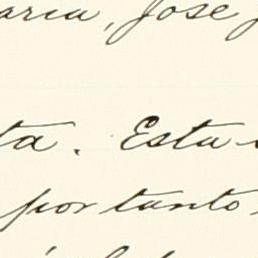 aria, José
ta. Esta
portanto